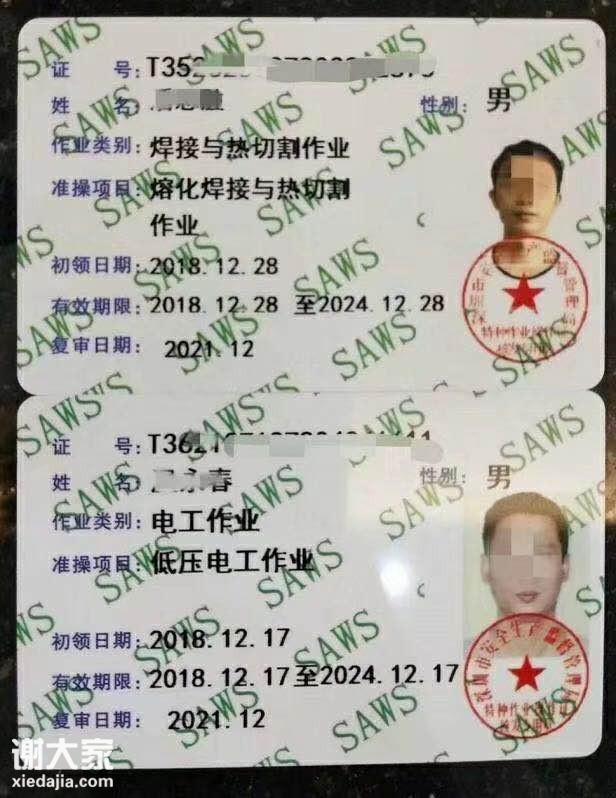 证 号:
姓 名: 性别: 男
作业类别: 焊接与热切割作业
准操项目: 熔化焊接与热切割
作业
初领日期: 2018.12.28
有效期限: 2018.12.28 至2024.12.28
复审日期: 2021.12
SAWS
证 号:
姓 名: 永春 性别: 男
作业类别: 电工作业
准操项目: 低压电工作业
初领日期: 2018.12.17
有效期限: 2018.12.17至2024.12.17
复审日期: 2021.12
深圳市安全生产监督管理局
谢大家
xiedajia.com